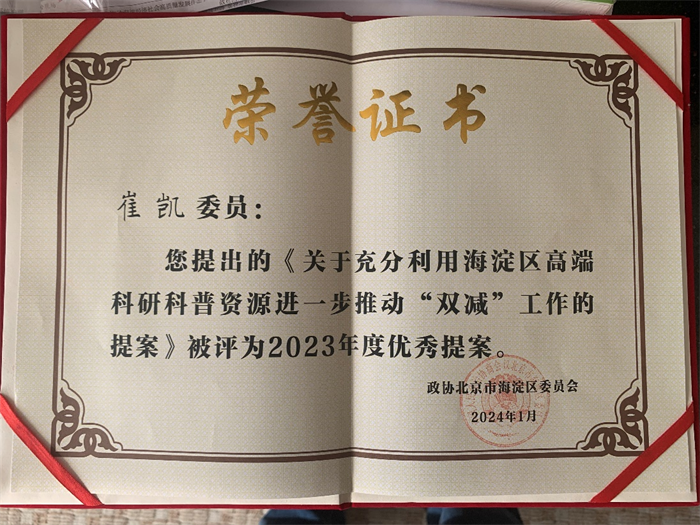 荣誉证书
崔凯委员：
您提出的《关于充分利用海淀区高端
科研科普资源进一步推动“双减”工作的
提案》被评为2023年度优秀提案。
政协北京市海淀区委员会
2024年1月